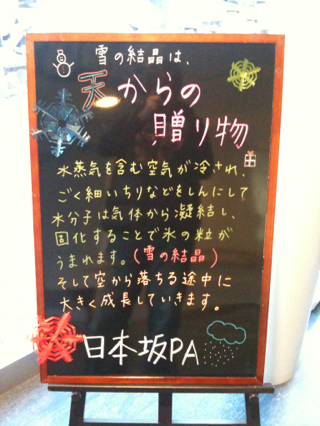 雪の結晶は、
天からの
贈り物
水蒸気を含む空気が冷され、
ごく細いちりなどをしんにして
水分子は気体から凝結し、
固化することで氷の粒が
うまれます。(雪の結晶)
そして空から落ちる途中に
大きく成長していきます。
日本坂PA